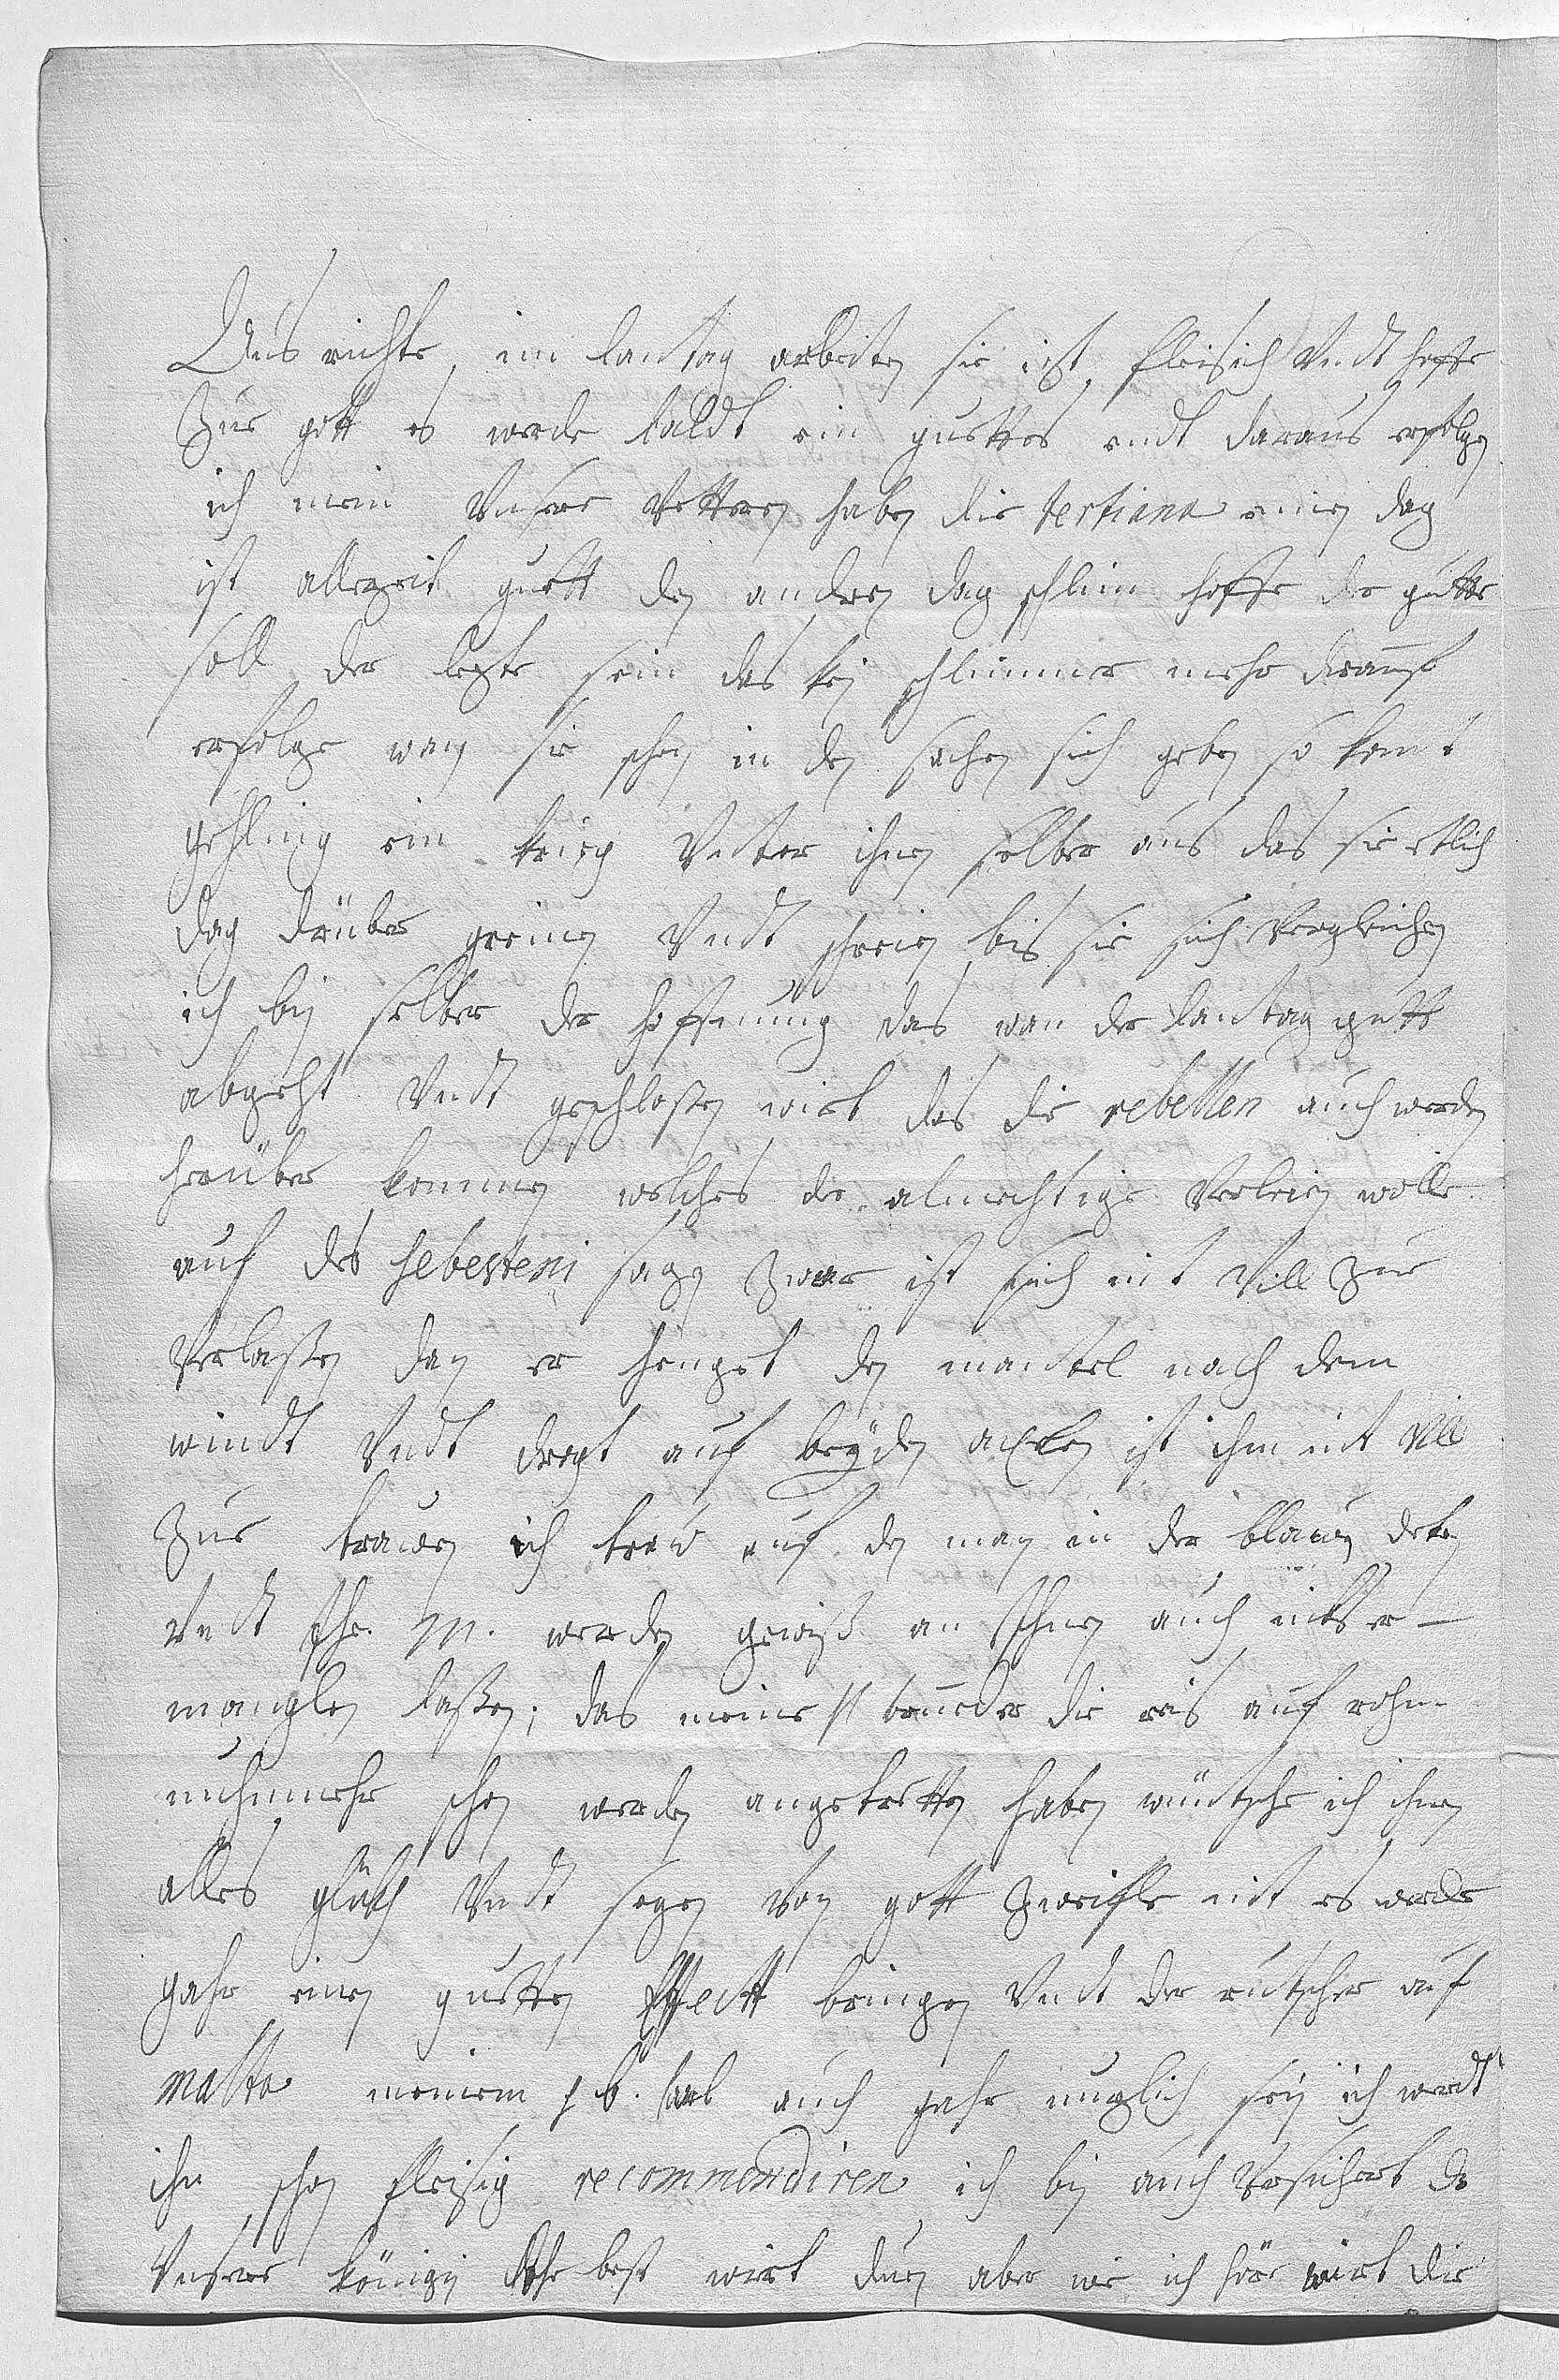 Uns richte, im lantag arbeiten sie ietzt fleisich Vndt hoffe
Zue gott es werde baldt ein guettes endt daraus erfolgen
ich mein Vnsere Vettern haben die tertiana einen dag
ist allezeit guett den andern dag schlim hoffe der guette
soll der lezte sein das kein schlimmer mehr darauf
erfolge wan sie schon in den sachen sich geben so komt
gehling ein krieg Vnter ihnen selber aus das sie etlich
dag drüber greinen Vndt schreien bis sie sich Vergleichen
ich bin selber der hoffnung das wan der lantag guett
abgeht Vndt geschlossen wirt das die rebellen auch werden
herüber kommen welches der almechtige Verleien wolle
auf des sagen Zwar ist sich nit Vill Zue
Verlassen dan er hengt den mantel nach dem
windt Vndt dregt auf beÿden axlen ist ihm nit Vill
Zue trauen ich traw auf den man in der blauen deken
Vndt Ihr M. werden gewiß an Ihnen auch nicts er-
manglen lassen; das meine brueder die reis auf rohm
nuhnmehr schon werden angetretten haben wüntsche ich ihnen
alles glückh Vndt segen Von gott Zweifle nit es werde
gahr einen guetten Effectt bringen Vndt der rutscher auf
malta meinem h b. carl auch gahr nuzlich sein ich werdt
ihn schon fleisig recommendiren ich bin auch Versichert das
Vnsere königin Ihr best wirt duen aber wie ich höre wirt die